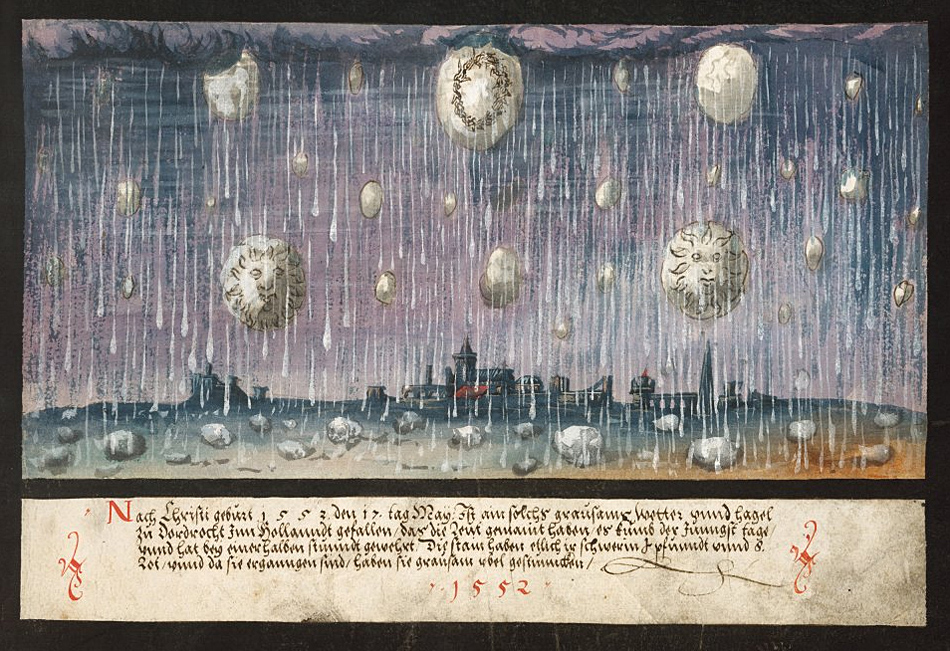 Nach Christi geburt 1 5 5 2 den 17 tag May. Ist ain solchs grausams wetter vnnd hagel
zu Dordrecht Inn Hollanndt gefallen, das die leut gemaint haben, es kumb der Jüngst tage,
vnnd hat bey einer halben stunndt gewehrt. Die stain haben etlich ir schwerin pfundt vnnd 8.
Lot, vnnd da sie erganngen sind, haben sie grausam vbel gestunncken,
1 5 5 2